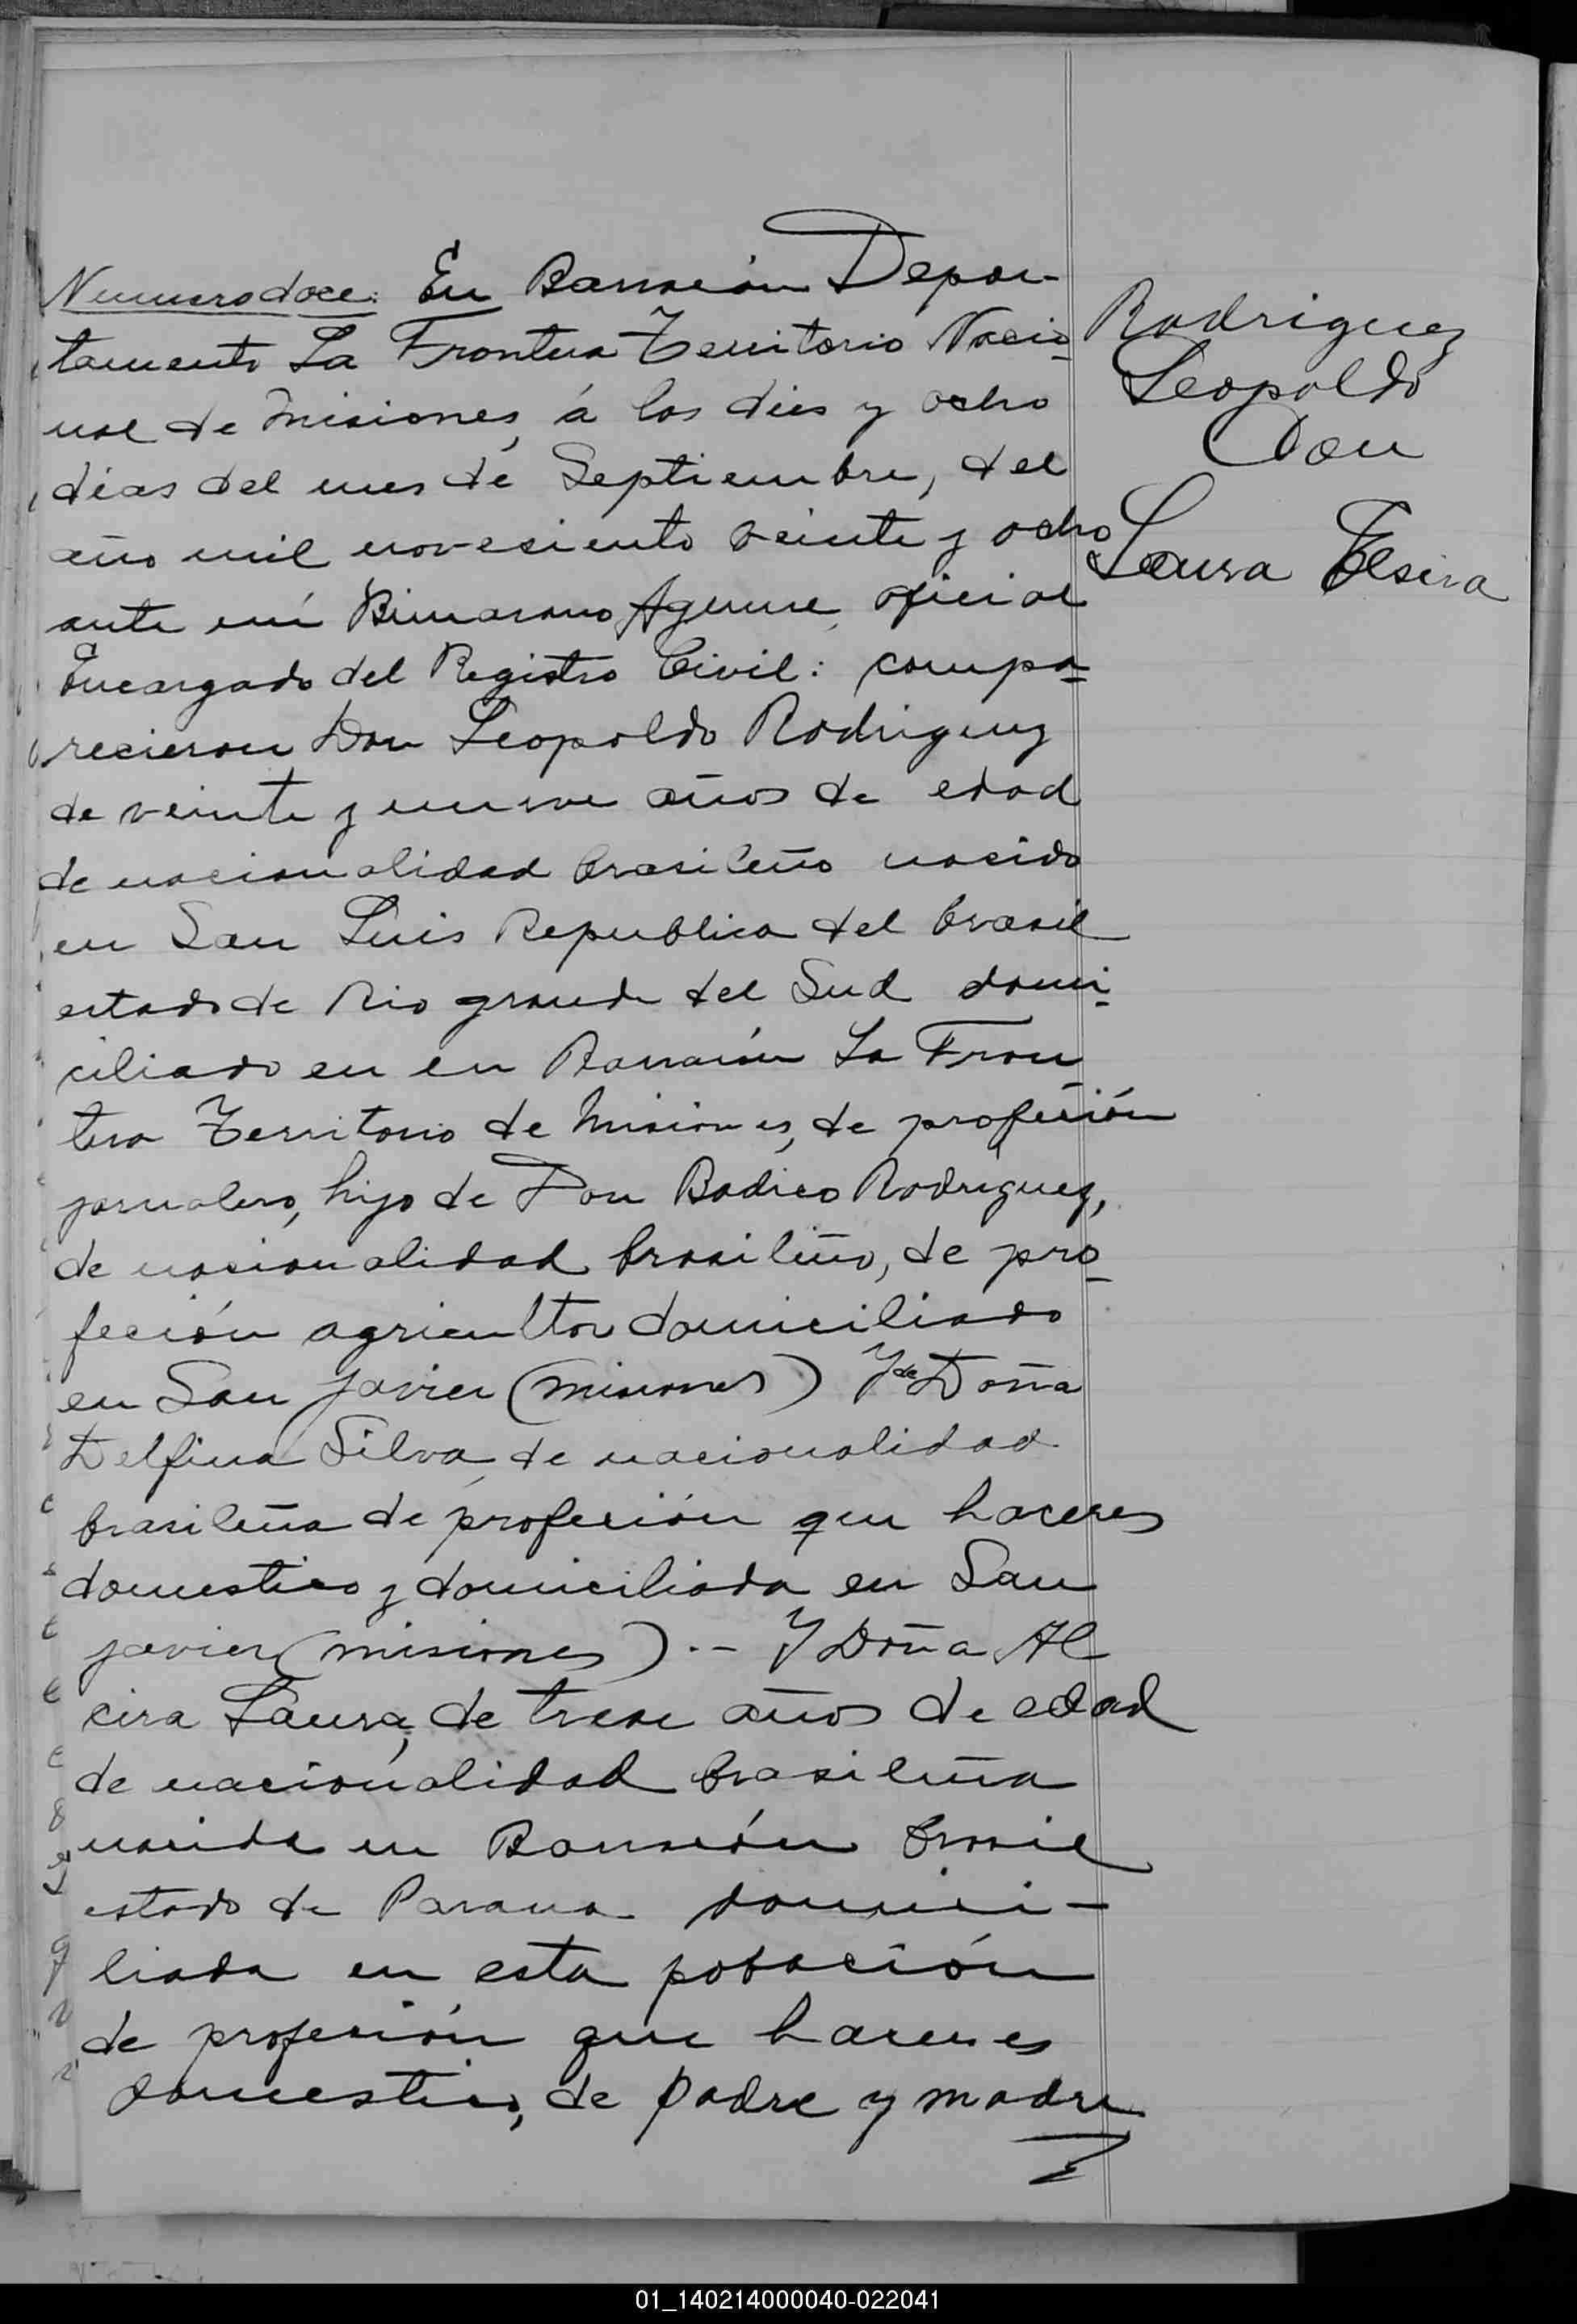 Numero doce: En Barracón Depar-
tamento La Frontera Territorio Nacio-
nal de Misiones, á los dies y ocho
dias del mes de Septiembre, del
año mil novesiento veinte y ocho
ante mí Aguirre, oficial
Encargado del Registro Civil: compa-
recieron Don Leopoldo Rodriguez
de veinte y nueve años de edad
de nacionalidad brasileño nacido
en San Luis Republica del brasil
estado de Rio grande del Sud domi-
ciliado en en Barracón La Fron
tera Territorio de Misiones, de profesión
jornalero, hijo de Don Rodriguez,
de nasionalidad brasileño, de pro-
feción agricultor domiciliado
en San Javier (misiones) Y de Doña
Delfina Silva, de nacionalidad
brasileña de profesión que haceres
domestico y domiciliada en San
javier (misiones).- Y Doña Al
cira Laura, de trese años de edad
de nacionalidad brasileña
nacida en Barracón brasil
estado de Parana domici-
liada en esta pobación
de profesión que hareres
domestico, de padre y madre
Rodriguez
Leopoldo
Con
Laura Elsira
01_140214000040-022041